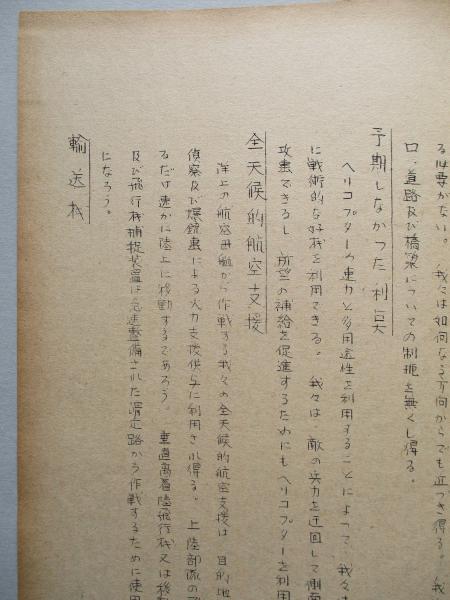 る必要がない。我々は如何なる方向からでも近づき得る。我
口、道路及び橋梁についての制扼を無くし得る。
予期しなかった利点
ヘリコプターの速力と多用途性を利用することによって、我々
に戦術的な好機を利用できる。我々は、敵の兵力を迂回して側面
攻撃できるし、所望の補給を促進するためにもヘリコプターを利用
全天候的航空支援
洋上の航空母艦から作戦する我々の全天候的航空支援は、目的地
偵察及び爆鎖裏による火力支援供与に利用され得る。上陸部隊の
るだけ速かに陸上に移動するであろう。垂直離着陸飛行機又は
及び飛行機捕捉装置は急速整備された滑走路から作戦するために使用
になろう。
輸送機